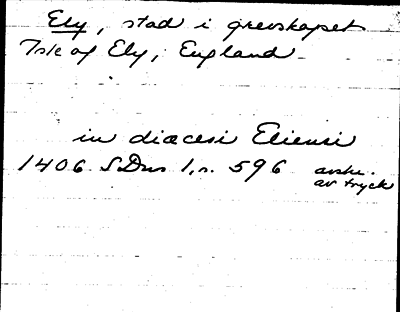 Ely, stad i grevskapet
Isle of Ely, England
in diœcesi Eliensi
1406 SDns 1, n. 596 avskr.
av tryck